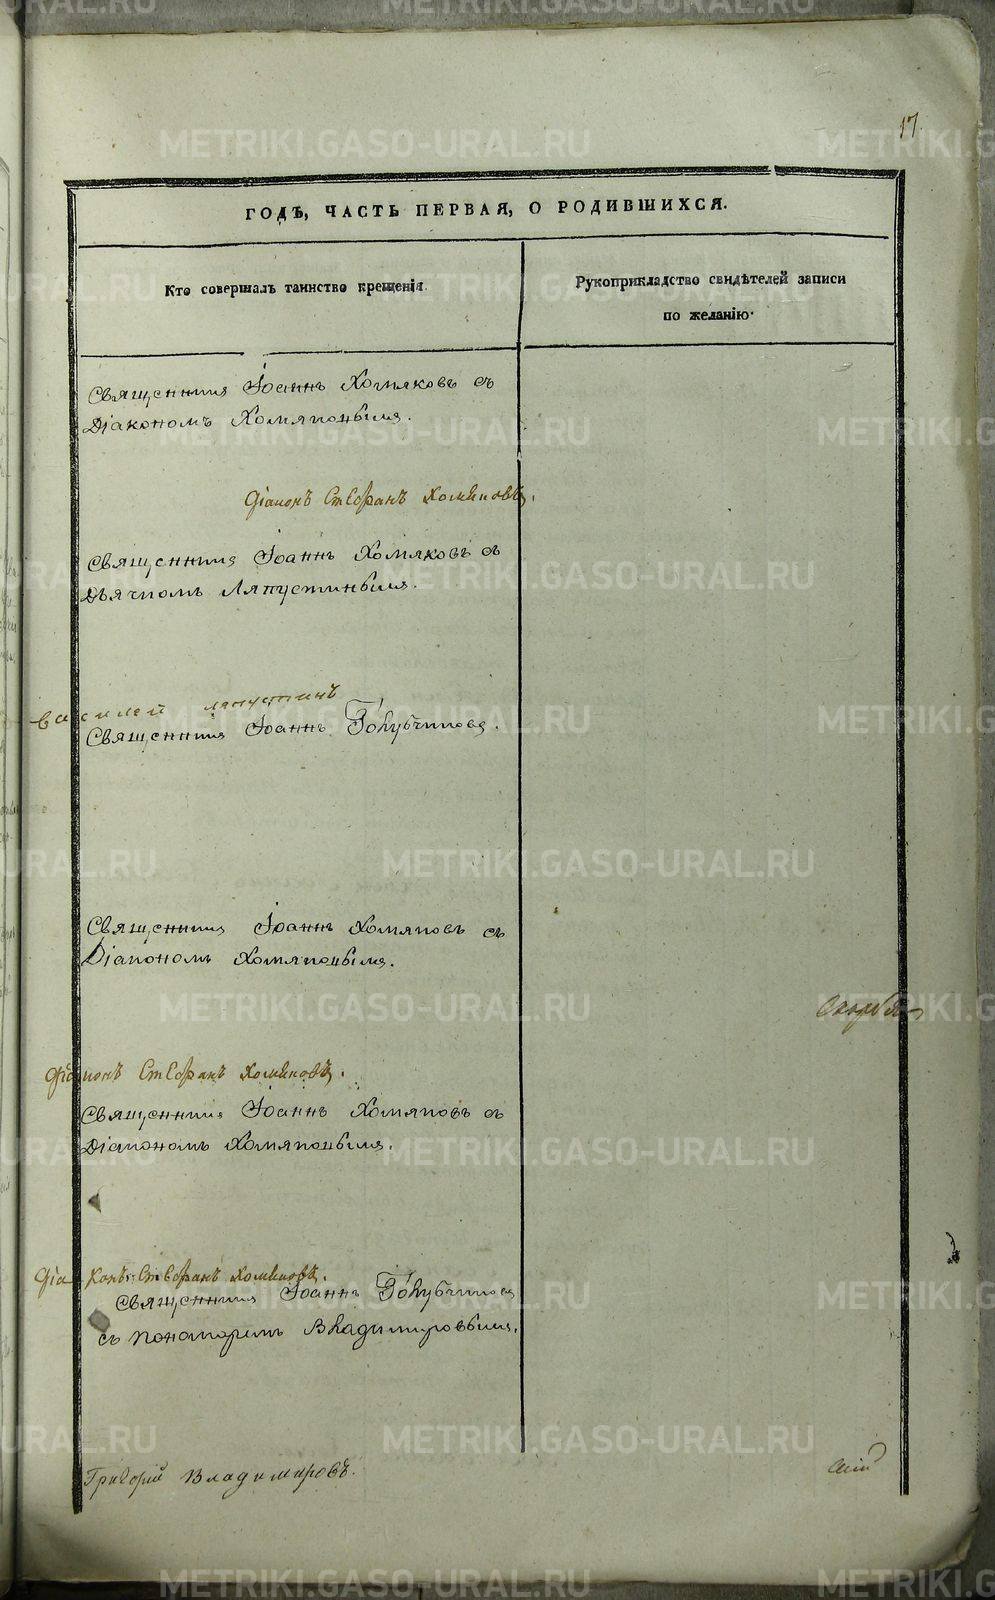 17.
ГОДЪ, ЧАСТЬ ПЕРВАЯ, О РОДИВШИХСЯ.
Кто совершалъ таинство крещенія.
Рукоприкладство свидѣтелей записи
по желанію.
Священникъ Іоаннъ Хомяковъ съ
Діакономъ Хомяковымъ.
Діаконъ Стефанъ Хомяковъ.
Священникъ Іоаннъ Хомяковъ съ
Дьячкомъ Ляпустинымъ.
Василей Ляпустинъ
Священникъ Іоаннъ Голубчиковъ.
Священникъ Іоаннъ Хомяковъ съ
Діакономъ Хомяковымъ.
Діаконъ Стефанъ Хомяковъ.
Священникъ Іоаннъ Хомяковъ съ
Діакономъ Хомяковымъ.
Діаконъ Стефанъ Хомяковъ.
Священникъ Іоаннъ Голубчиковъ
съ Пономаремъ Владимировымъ.
Григорий Владимировъ.
METRIKI.GASO-URAL.RU